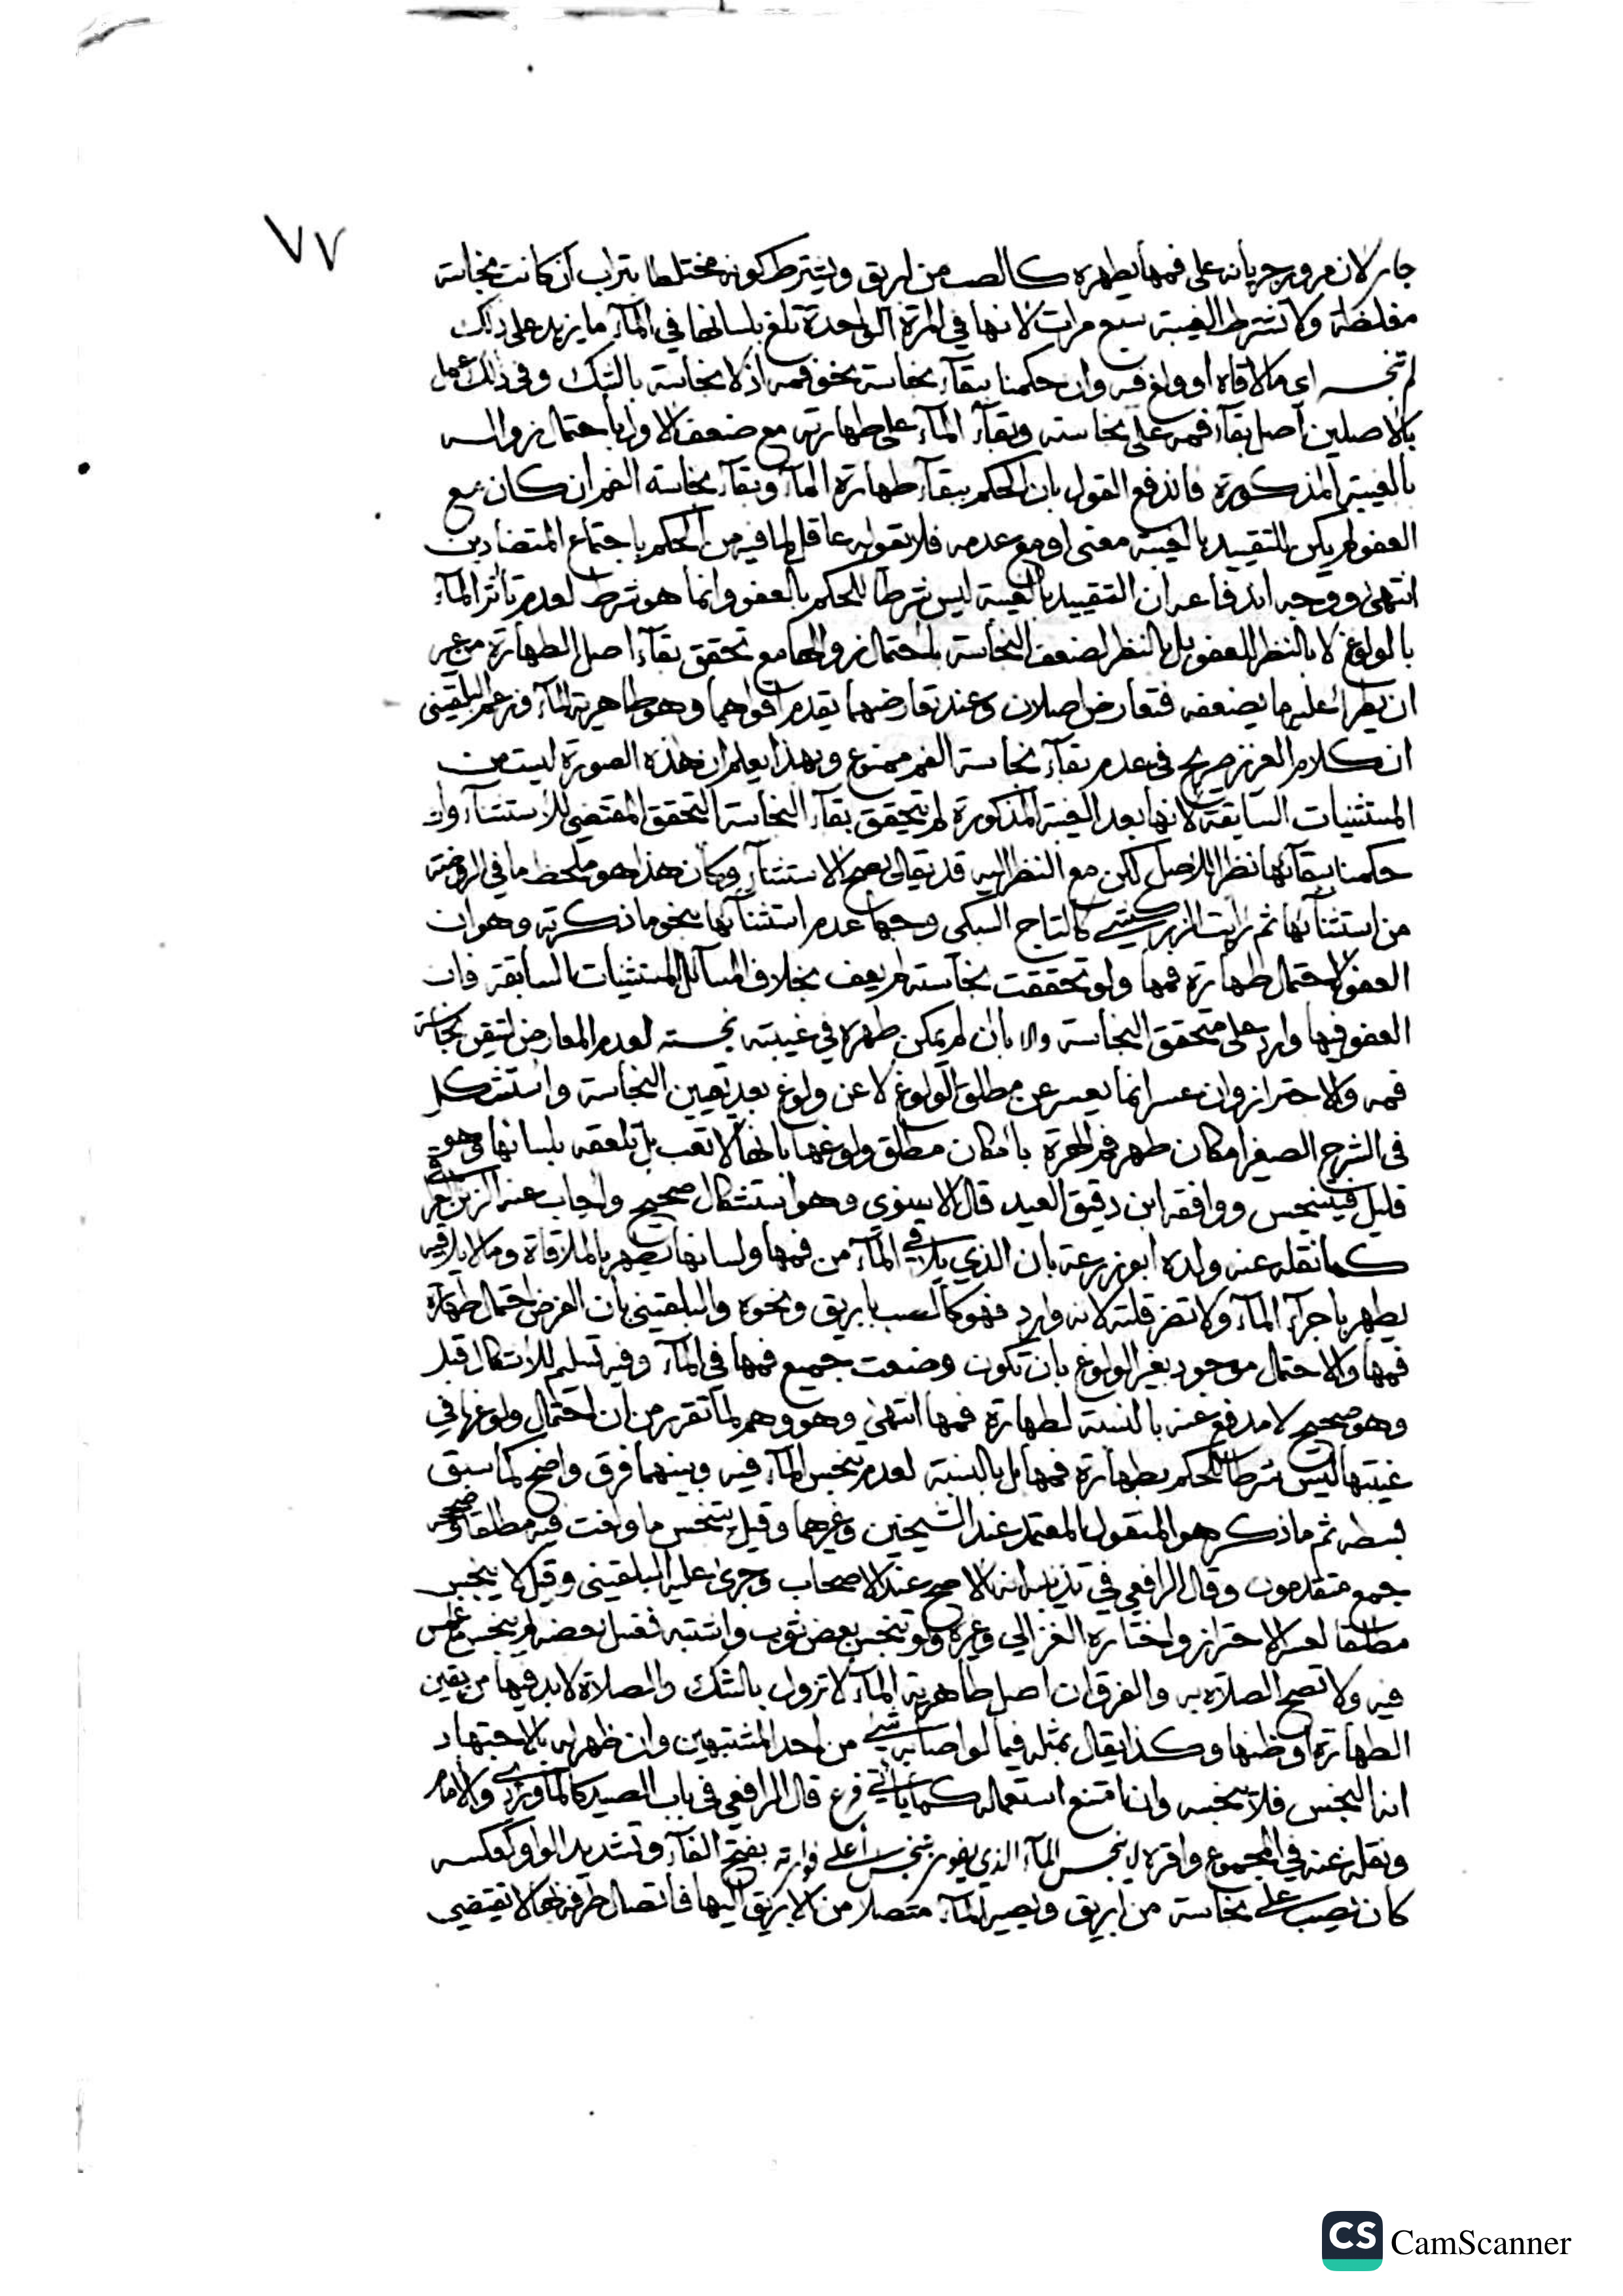 ٧٧
جار لان مرور جريانه على فمها يطهره كالصب من ابريق ويشترط كونه مختلطا بتراب ان كانت نجاسته
مغلظة ولا تشترط الغيبة سبع مرات لانها في المرة الواحدة تلغ بلسانها في المآء ما يزيد على ذلك
لم تنجسه اي ما لاقاه او ولغ فيه وان حكمنا ببقآء نجاسة نحو فمه اذ لا نجاسة بالشك وفي ذلك عمل
بالاصلين اصل بقآء فمه على نجاسته وبقآء المآء على طهارته مع ضعف الاول باحتمال زواله
بالغيبة المذكورة فاندفع القول بان الحكم ببقآء طهارة المآء وبقآء نجاسة الفم ان كان مع
العفو لم يكن للتقييد بالغيبة معنى او مع عدمه فلا يقوله عاقل لما فيه من الحكم باجتماع المتضادين
انتهى ووجه اندفاعه ان التقييد بالغيبة ليس شرطا للحكم بالعفو وانما هو شرط لعدم تأثر المآء
بالولوغ لا بالنظر للعفو بل بالنظر لضعف النجاسة باحتمال زوالها مع تحقق بقآء اصل الطهارة من غير
ان يطرأ عليه ما يضعفه فتعارض اصلان وعند تعارضهما يقدم اقواهما وهو طاهرية المآء وزعم البلقيني
ان كلام العزيز صريح في عدم بقآء نجاسة الفم ممنوع وبهذا يعلم ان هذه الصورة ليست من
المستثنيات السابقة لانها بعد الغيبة المذكورة لم يتحقق بقآء النجاسة التحقق المقتضي للاستثنآء وان
حكمنا ببقآئها نظرا للاصل لكن مع النظر اليه قد يقال يصح الاستثنآء وكان هذا هو ملحظ ما في الروضة
من استثنآئها ثم رايت الزركشي كالتاج السبكي وجها عدم استثنآئها بنحو ما ذكرته وهو ان
العفو لاحتمال طهارة فمها ولو تحققت نجاسته لم يعف بخلاف المسآئل المستثنيات السابقة فان
العفو فيها وارد على متحقق النجاسة والا بان لم يمكن طهره في غيبته نجسته لعدم المعارض لتيقن نجاسة
فمه والاحتراز وان عسر انما يعسر عن مطلق الولوغ لا عن ولوغ بعد تعيين النجاسة واستشكل
في الشرح الصغير امكان طهر فم الهرة بامكان مطلق ولوغها بانها لا تعب بل تلعقه بلسانها وهو
قليل فيتنجس ووافقه ابن دقيق العيد قال الاسنوي وهو استشكال صحيح واجاب عنه الزين العراقي
كما نقله عنه ولده ابو زرعة بان الذي يلاقي المآء من فمها ولسانها يطهر بالملاقاة وما لا يلاقيه
يطهر باجرآء المآء ولا تضر قلته لانه وارد فهو كالصب بابريق ونحوه والبلقيني بان الغرض احتمال طهارة
فمها والاحتمال موجود بغير الولوغ بان تكون وضعت جميع فمها في المآء وفيه تسليم للاشكال قيل
وهو صحيح لا مدفع عنه بالنسبة لطهارة فمها انتهى وهو وهم لما تقرر من ان احتمال ولوغها في
غيبتها ليس شرطا للحكم بطهارة فمها بل بالنسبة لعدم تنجس المآء فيه وبينهما فرق واضح كما سبق
بسطه ثم ما ذكر هو المنقول المعتمد عند الشيخين وغيرهما وقيل يتنجس ما ولغت فيه مطلقا وصححه
جمع متقدمون وقال الرافعي في تذنيبه انه الاصح عند الاصحاب وجرى عليه البلقيني وقيل لا ينجس
مطلقا لعسر الاحتراز واختاره الغزالي وغيره ولو تنجس بعض ثوب واشتبه فغسل بعضه لم ينجس ما غمس
فيه ولا تصح الصلاة به والفرق ان اصل طاهرية المآء لا تزول بالشك والصلاة لابد فيها من يقين
الطهارة او ظنها وكذا يقال بمثله فيما لو اصابه شيء من احد المشتبهين وان ظهر له بالاجتهاد
انه النجس فلا ينجسه وان امتنع استعماله كما يأتي فرع قال الرافعي في باب الصيد كالماوردي والامام
ونقله عنه في المجموع واقره لا ينجس المآء الذي يفور بنجس اعلى فوارته بفتح الفآء وتشديد الواو كعكسه
كان يصب على نجاسة من ابريق ويصير المآء متصلا من الابريق اليها فاتصال طرفه بها لا يقتضي
CS CamScanner